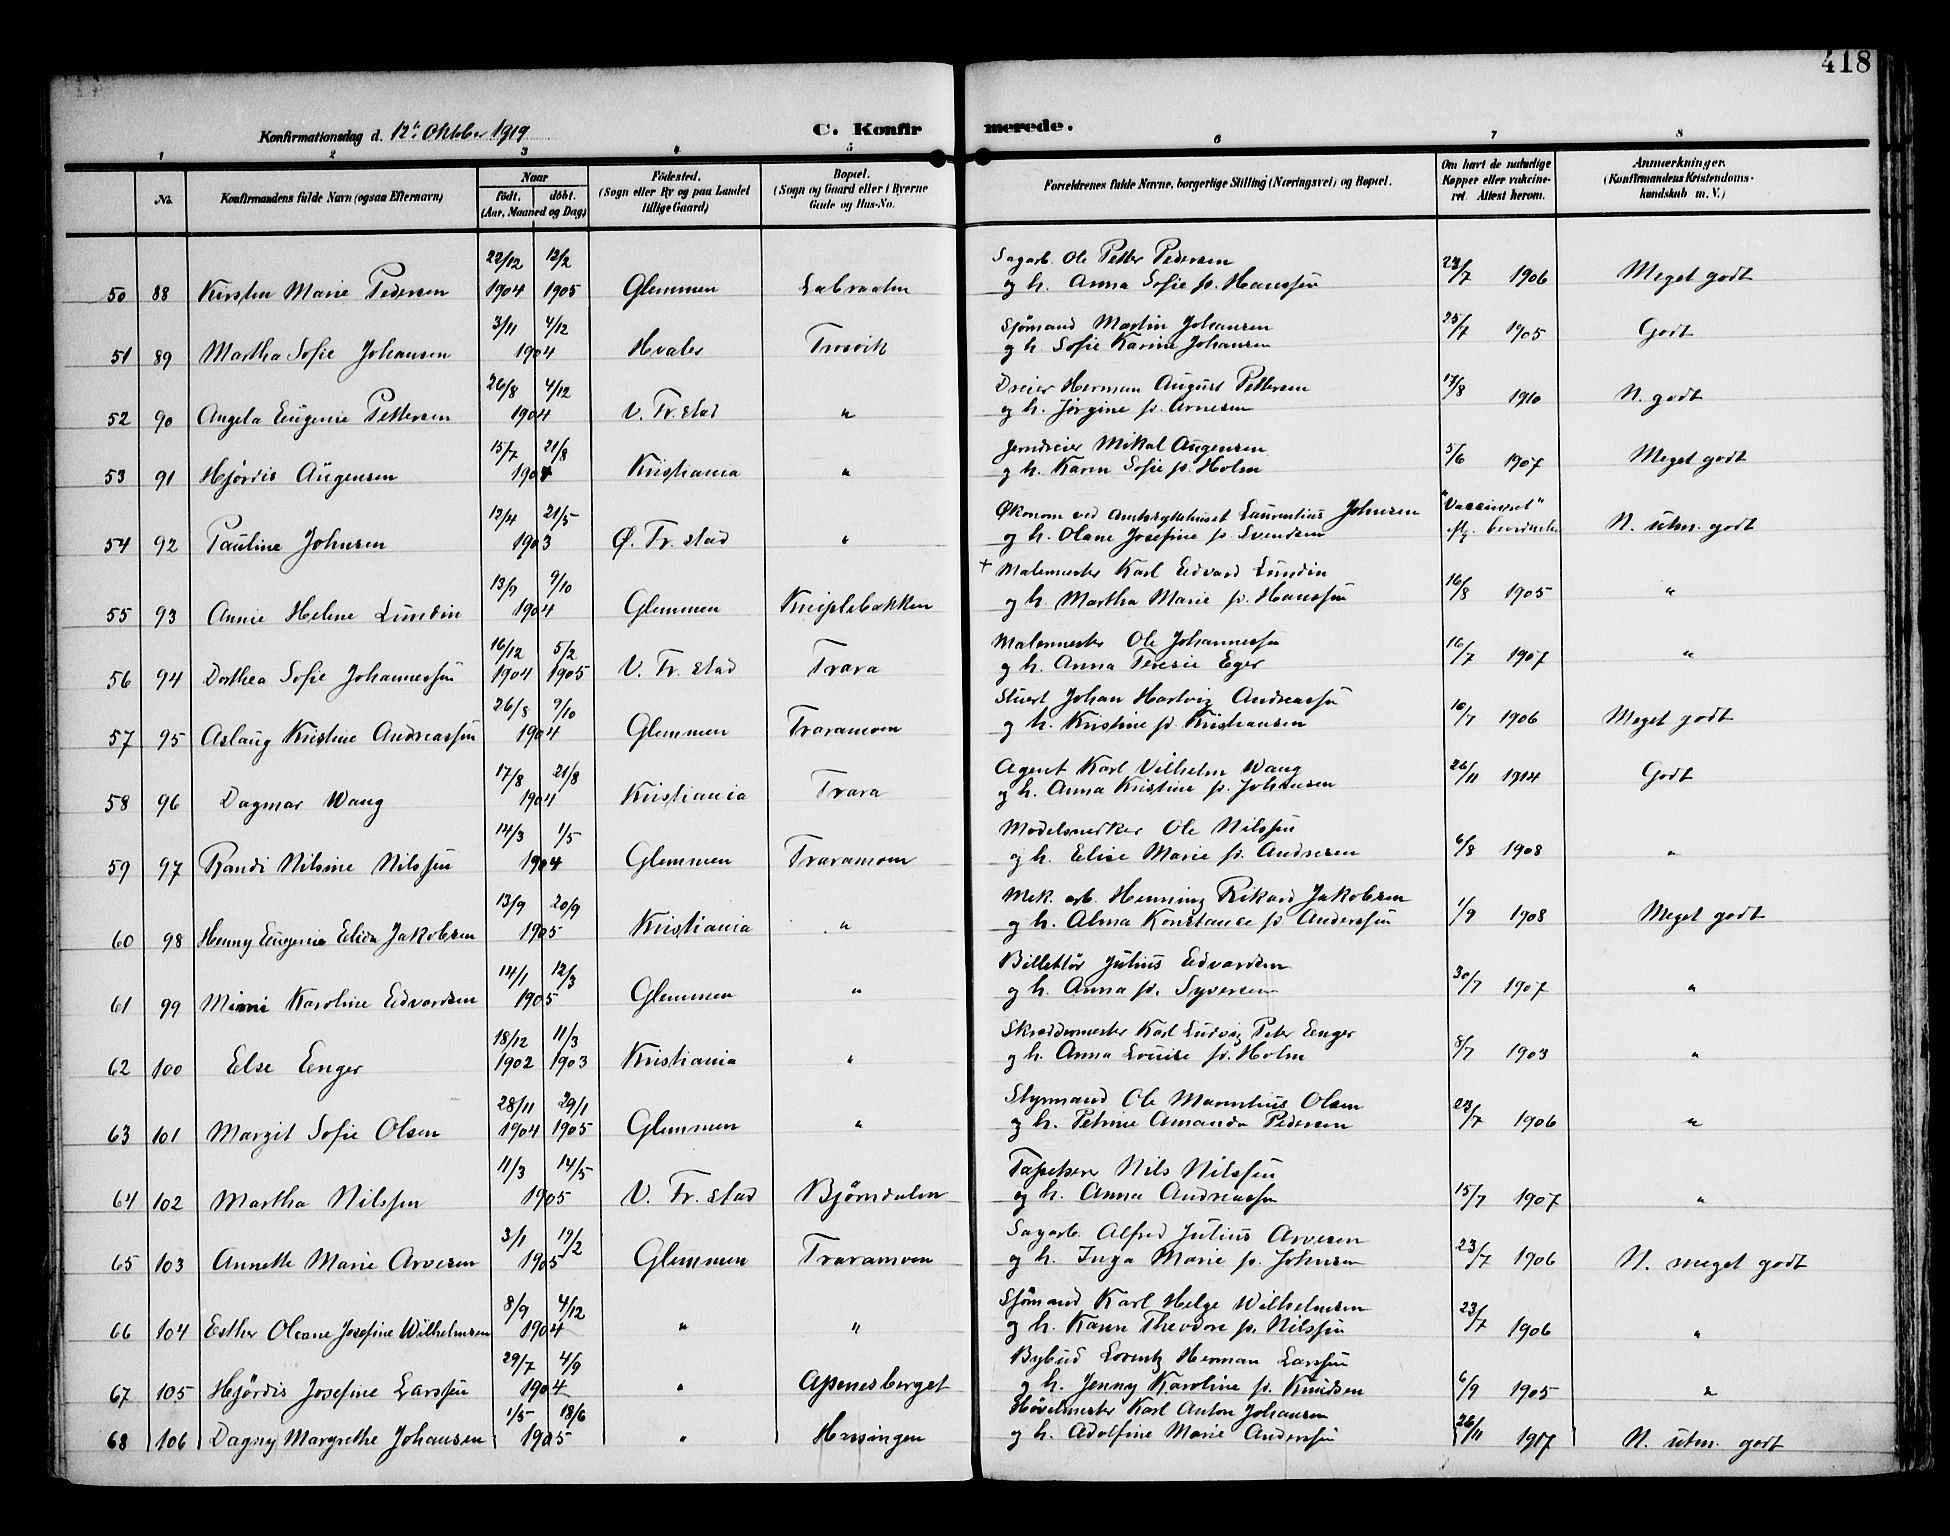 418
Konfirmationsdag d. 12te Oktober 1919
C. Konfirmerede.
1 2 3 4 5 6 7 8
No. Konfirmandens fulde Navn (ogsaa Efternavn) Naar født. døbt. (Aar, Maaned og Dag) Fødested. (Sogn eller By og paa Landet tillige Gaard) Bopæl. (Sogn og Gaard eller i Byerne Gade og Hus-No. Forældrenes fulde Navne, borgerlige Stilling (Næringsvei) og Bopæl. Om havt de naturlige Kopper eller vakcineret. Attest herom. Anmærkninger. (Konfirmandens Kristendomskundskab m. V.)
22/12 12/2 Sagarb. Ole Petter Pedersen
50 88 Kirsten Marie Pedersen 1904 1905 Glemmen Labraaten og h. Anna Sofie f. Hanssen 23/7 1906 Meget godt
3/11 4/12 Sjømand Martin Johansen
51 89 Martha Sofie Johansen 1904 Hvaler Trosvik og h. Sofie Karine Johansen 25/7 1905 Godt
26/8 4/12 Dreier Herman August Pettersen
52 90 Angela Eugenie Pettersen 1904 V. Fr. stad " og h. Jørgine f. Arnesen 17/8 1910 N. godt
15/7 21/8 Jerndreier Mikal Augensen
53 91 Hjørdis Augensen 1904 Kristiania " og h. Karen Sofie f. Holm 5/6 1907 Meget godt
12/4 21/5 Økonom ved Amtssykehuset Laurentius Johnsen "Vaccineret"
54 92 Pauline Johnsen 1903 Ø. Fr. stad " og h. Olane Josefine f. Svendsen N. utm. godt
13/9 9/10 + Malermester Karl Edvard Lundin
55 93 Annie Helene Lundin 1904 Glemmen Kniplebakken og h. Martha Marie f. Hanssen 16/8 1905 "
16/12 5/2 Malermester Ole Johannessen
56 94 Dorthea Sofie Johannessen 1904 1905 V. Fr. stad Trara og h. Anna Teresie Eger 16/7 1907 "
26/8 9/10 Stuert Johan Hartvig Andreassen
57 95 Aslaug Kristine Andreassen 1904 Glemmen Traramoen og h. Kristine f. Kristiansen 10/7 1906 Meget godt
17/8 21/8 Agent Karl Vilhelm Wang
58 96 Dagmar Wang 1904 Kristiania Trara og h. Anna Kristine f. Johansen 26/11 1914 Godt
14/3 1/5 Modelsnedker Ole Nilssen
59 97 Randi Nilsine Nilssen 1904 Glemmen Traramoen og h. Elise Marie f. Andresen 6/8 1908 "
13/9 20/9 Mek. arb. Henning Rikard Jakobsen
60 98 Henny Eugenie Elida Jakobsen 1905 Kristiania " og h. Alma Konstance f. Anderssen 1/9 1908 Meget godt
14/1 12/3 Billettør Julius Edvardsen
61 99 Mimi Karoline Edvardsen 1905 Glemmen " og h. Anna f. Syversen 30/7 1907 "
18/12 11/3 Skræddermester Karl Ludvig Peter Enger
62 100 Else Enger 1902 1903 Kristiania " og h. Anna Louise f. Holm 8/7 1903 "
28/11 29/1 Styrmand Ole Marentius Olsen
63 101 Margit Sofie Olsen 1904 1905 Glemmen " og h. Petrine Amanda Pedersen 23/7 1906 "
11/3 14/5 Tapetserer Nils Nilssen
64 102 Martha Nilssen 1905 V. Fr. stad Bjørndalen og h. Anna Andreassen 15/7 1907 "
3/1 19/2 Sagarb. Alfred Julius Arvesen
65 103 Annette Marie Arvesen 1905 Glemmen Traramoen og h. Inga Marie f. Johnsen 23/7 1906 N. meget godt
8/9 4/12 Sjømand Karl Helge Wilhelmsen
66 104 Esther Oleane Josefine Wilhelmsen 1904 " " og h. Karen Theodore f. Nilssen 23/7 1906 "
29/7 4/9 Bybud Lorentz Herman Larssen
67 105 Hjørdis Josefine Larssen 1904 " Apenesberget og h. Jenny Karoline f. Knudsen 6/9 1905 "
1/5 18/6 Høvelmester Karl Anton Johansen
68 106 Dagny Margrethe Johansen 1905 " Hassingen og h. Adolfine Marie Anderssen 26/11 1917 N. utm. godt